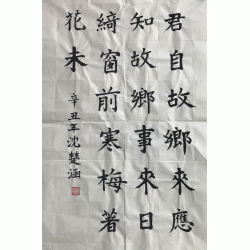 君自故鄉來應
知故鄉事來日
綺窗前寒梅著
花未
辛丑年沈楚涵